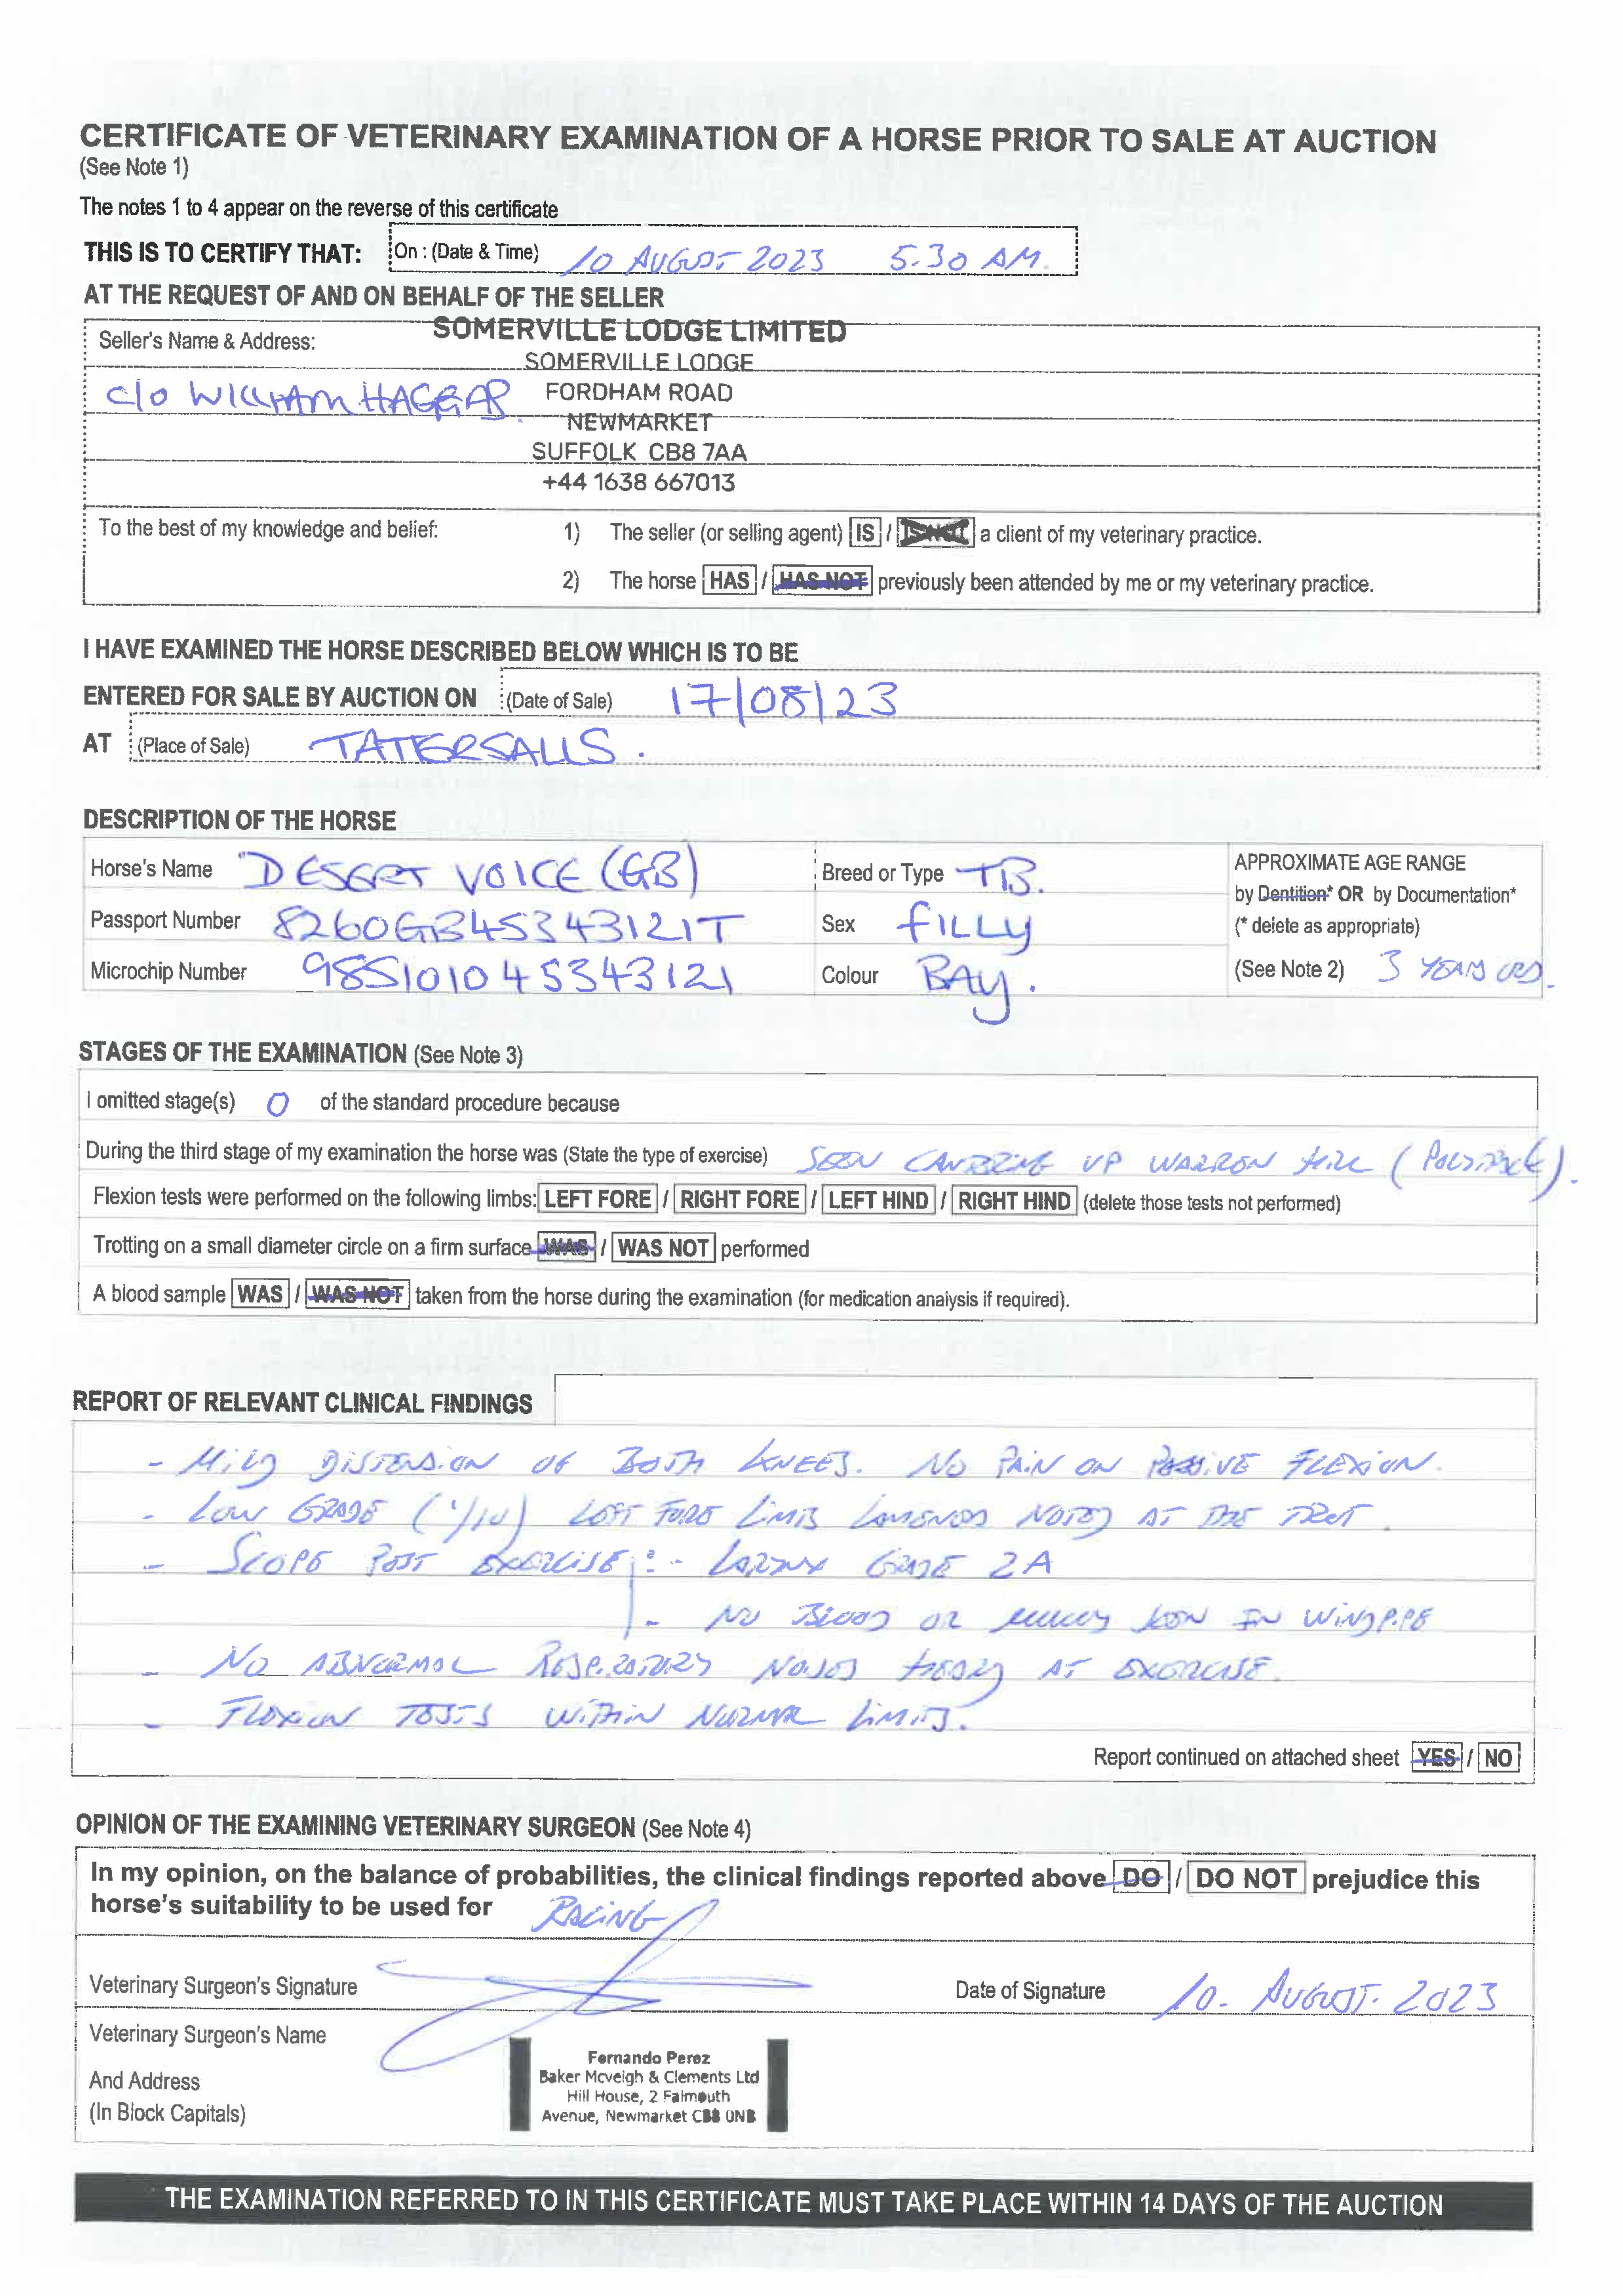 CERTIFICATE OF VETERINARY EXAMINATION OF A HORSE PRIOR TO SALE AT AUCTION
(See Note 1)
The notes 1 to 4 appear on the reverse of this certificate
THIS IS TO CERTIFY THAT: On : (Date & Time) 10 AUGUST 2023 5.30 AM.
AT THE REQUEST OF AND ON BEHALF OF THE SELLER
Seller's Name & Address: SOMERVILLE LODGE LIMITED
SOMERVILLE LODGE
c/o WILLIAM HAGGAS FORDHAM ROAD
NEWMARKET
SUFFOLK CB8 7AA
+44 1638 667013
To the best of my knowledge and belief: 1) The seller (or selling agent) IS / IS NOT a client of my veterinary practice.
2) The horse HAS / HAS NOT previously been attended by me or my veterinary practice.
I HAVE EXAMINED THE HORSE DESCRIBED BELOW WHICH IS TO BE
ENTERED FOR SALE BY AUCTION ON (Date of Sale) 17/08/23
AT (Place of Sale) TATTERSALLS.
DESCRIPTION OF THE HORSE
Horse's Name DESERT VOICE (GB) Breed or Type TB. APPROXIMATE AGE RANGE
by Dentition* OR by Documentation*
Passport Number 8260GB45343121T Sex FILLY (* delete as appropriate)
Microchip Number 985101045343121 Colour BAY. (See Note 2) 3 YEARS OLD.
STAGES OF THE EXAMINATION (See Note 3)
I omitted stage(s) 0 of the standard procedure because
During the third stage of my examination the horse was (State the type of exercise) SEEN CANTERING UP WARREN HILL (POLYTRACK).
Flexion tests were performed on the following limbs: LEFT FORE / RIGHT FORE / LEFT HIND / RIGHT HIND (delete those tests not performed)
Trotting on a small diameter circle on a firm surface WAS / WAS NOT performed
A blood sample WAS / WAS NOT taken from the horse during the examination (for medication analysis if required).
REPORT OF RELEVANT CLINICAL FINDINGS
- MILD DISTENSION OF BOTH KNEES. NO PAIN ON PASSIVE FLEXION.
- LOW GRADE (1/10) LEFT FORE LIMB LAMENESS NOTED AT THE TROT.
- SCOPE POST EXERCISE: - LARYNX GRADE 2A
- NO BLOOD OR SEEN IN WINDPIPE
- NO ABNORMAL RESPIRATORY NOISES HEARD AT EXERCISE.
- FLEXION TESTS WITHIN NORMAL LIMITS.
Report continued on attached sheet YES / NO
OPINION OF THE EXAMINING VETERINARY SURGEON (See Note 4)
In my opinion, on the balance of probabilities, the clinical findings reported above DO / DO NOT prejudice this
horse's suitability to be used for RACING
Veterinary Surgeon's Signature Date of Signature 10. AUGUST. 2023
Veterinary Surgeon's Name
And Address
(In Block Capitals)
Fernando Perez
Baker Mcveigh & Clements Ltd
Hill House, 2 Falmouth
Avenue, Newmarket CB8 0NB
THE EXAMINATION REFERRED TO IN THIS CERTIFICATE MUST TAKE PLACE WITHIN 14 DAYS OF THE AUCTION